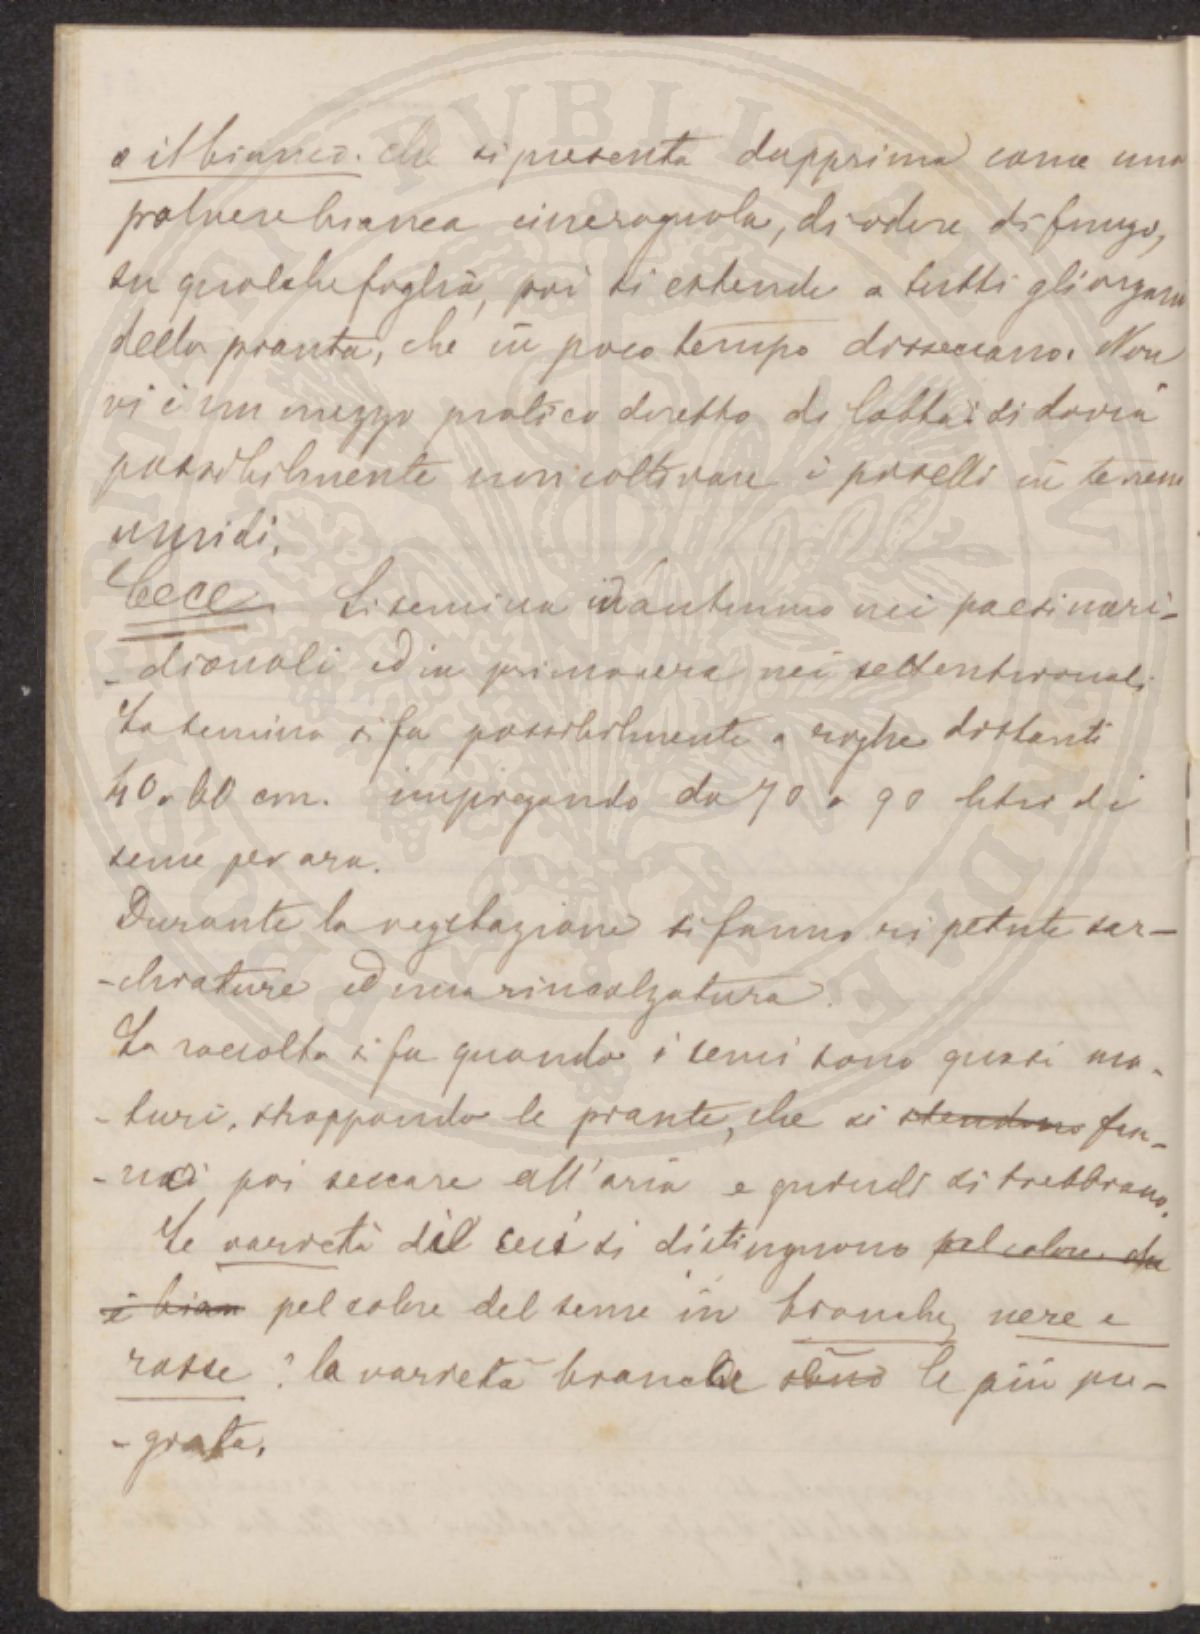 o il bianco. che si presenta dapprima come una
polvere bianca cinerognola, di odore di fungo,
su qualche foglia, poi si estende a tutti gli organi
della pianta, che in poco tempo disseccano. Non
vi è un mezzo pratico diretto di lotta: si dovrà
possibilmente non coltivare i piselli in terreni
umidi.
Cece. Si semina in autunno nei paesi meri-
-dionali ed in primavera nei settentrionali
La semina si fa possibilmente a righe distanti
40 a 60 cm. impiegando da 70 a 90 litri di
seme per ara.
Durante la vegetazione si fanno ripetute sar-
-chiature ed una rincalzatura.
La raccolta si fa quando i semi sono quasi ma-
-turi, strappando le piante, che si stendono fan-
-no poi seccare all'aria e quindi si trebbiano.
Le varietà del ceci si distinguono pel colore. che
è bian pel colore del seme in bianche, nere e
rosse: la varietà bianche sono le più pre-
-giata.